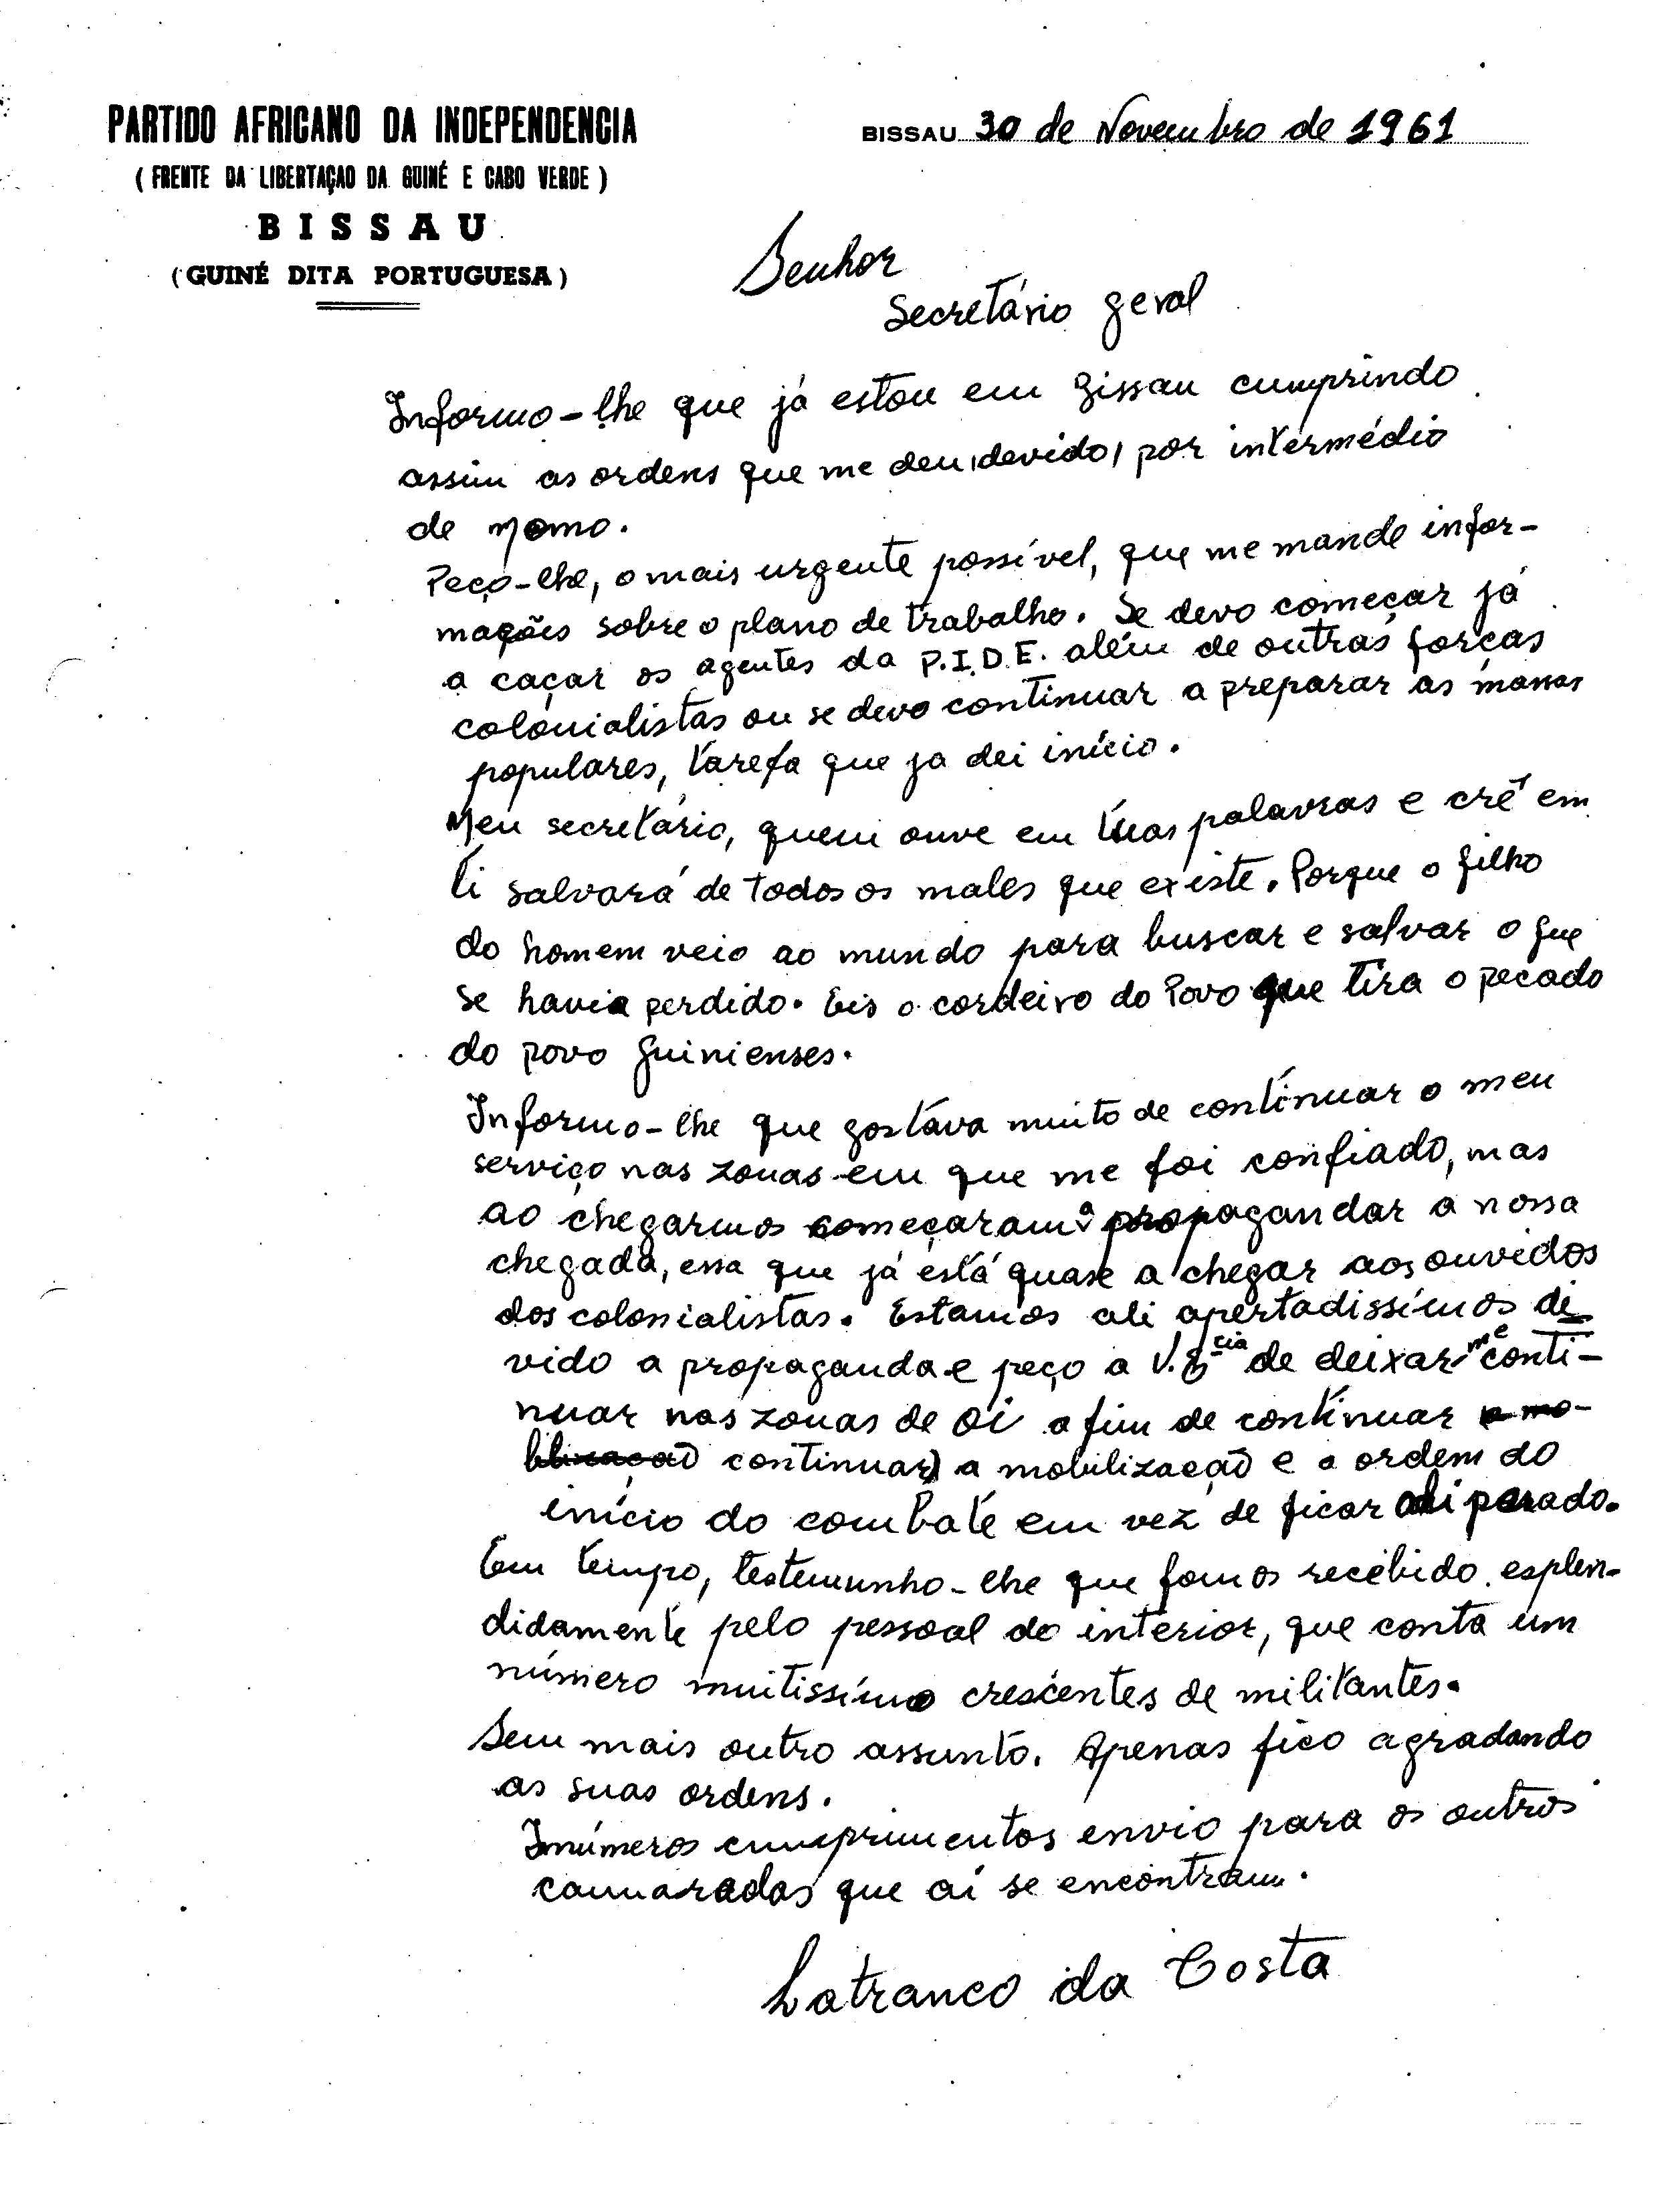 PARTIDO AFRICANO DA INDEPENDENCIA
( FRENTE DA LIBERTAÇAO DA GUINÉ E CABO VERDE )
BISSAU
( GUINÉ DITA PORTUGUESA )
BISSAU 30 de Novembro de 1961
Senhor
Secretário geral
Informo-lhe que já estou em Bissau cumprindo
assim as ordens que me deu, devido, por intermédio
de Momo.
Peço-lhe, o mais urgente possível, que me mande infor-
mações sobre o plano de trabalho. Se devo começar já
a caçar os agentes da P.I.D.E. além de outras forças
colonialistas ou se devo continuar a preparar as massas
populares, tarefa que ja dei início.
Meu secretário, quem ouve em tuas palavras e crê em
ti salvará de todos os males que existe. Porque o filho
do homem veio ao mundo para buscar e salvar o que
se havia perdido. Eis o cordeiro do Povo que tira o pecado
do povo guinienses.
Informo-lhe que gostava muito de continuar o meu
serviço nas zonas em que me foi confiado, mas
ao chegarmos começaram a propagandar a nossa
chegada, essa que já está quase a chegar aos ouvidos
dos colonialistas. Estamos ali apertadissímos di
vido a propaganda e peço a V. Ecia de deixar me conti-
nuar nas zonas de Oi a fim de continuar a mo-
bilização continuar) a mobilização e a ordem do
início do combate em vez de ficar ali parado.
Em tempo, testemunho-lhe que fomos recebido esplen-
didamente pelo pessoal do interior, que conta um
número muitissímo crescentes de militantes.
Sem mais outro assunto. Apenas fico agradando
as suas ordens.
Inúmeros cumprimentos envio para os outros
camaradas que aí se encontram.
Latranco da Costa